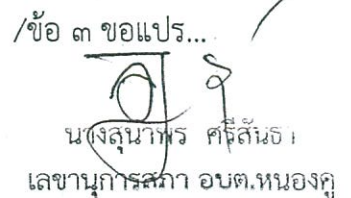 /ข้อ ๓ ขอแปร...
นางสุนาพร ศรีสันธา
เลขานุการสภา อบต.หนองคู